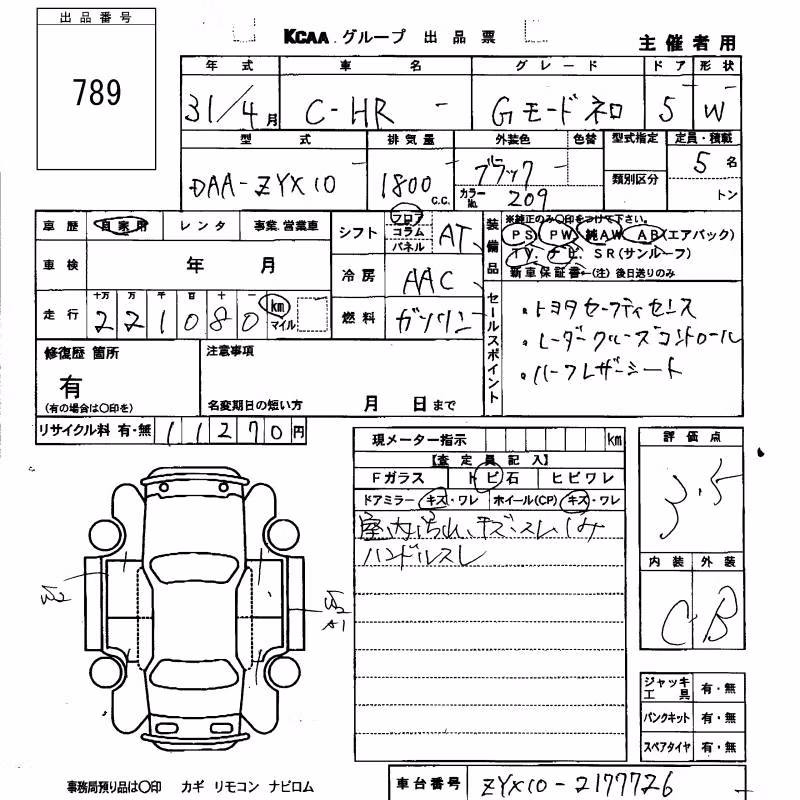 出品番号
789
KCAA グループ 出品票
主催者用
年式 車名 グレード ドア 形状
31/4月 C-HR - Gモードネロ 5 W
型式 排気量 外装色 色替 型式指定 定員・積載
DAA-ZYX10 1800 C.C. ブラック カラーNo. 209 類別区分 5名 トン
車歴 自家用 レンタ 事業.営業車
シフト フロア コラム パネル AT
装備品 ※純正のみ○印をつけて下さい。
PS PW 純AW AB(エアバック)
TV. ナビ. SR(サンルーフ)
新車保証書←(注)後日送りのみ
車検 年 月
冷房 AAC
走行 十万 万 千 百 十 一
221080 km マイル
燃料 ガソリン
セールスポイント
・トヨタセーフティセンス
・レーダークルーズコントロール
・ハーフレザーシート
修復歴 箇所
有
(有の場合は○印を)
注意事項
名変期日の短い方 月 日まで
リサイクル料 有・無 11270円
現メーター指示 km
【査定員記入】
Fガラス トビ石 ヒビワレ
ドアミラー キズ・ワレ ホイール(CP) キズ・ワレ
室内汚れ、キズ・スレ、シミ
ハンドルスレ
評価点
3.5
内装 外装
C B
W2
W2
A1
ジャッキ工具 有・無
パンクキット 有・無
スペアタイヤ 有・無
事務局預り品は○印 カギ リモコン ナビロム
車台番号 ZYX10-2177726